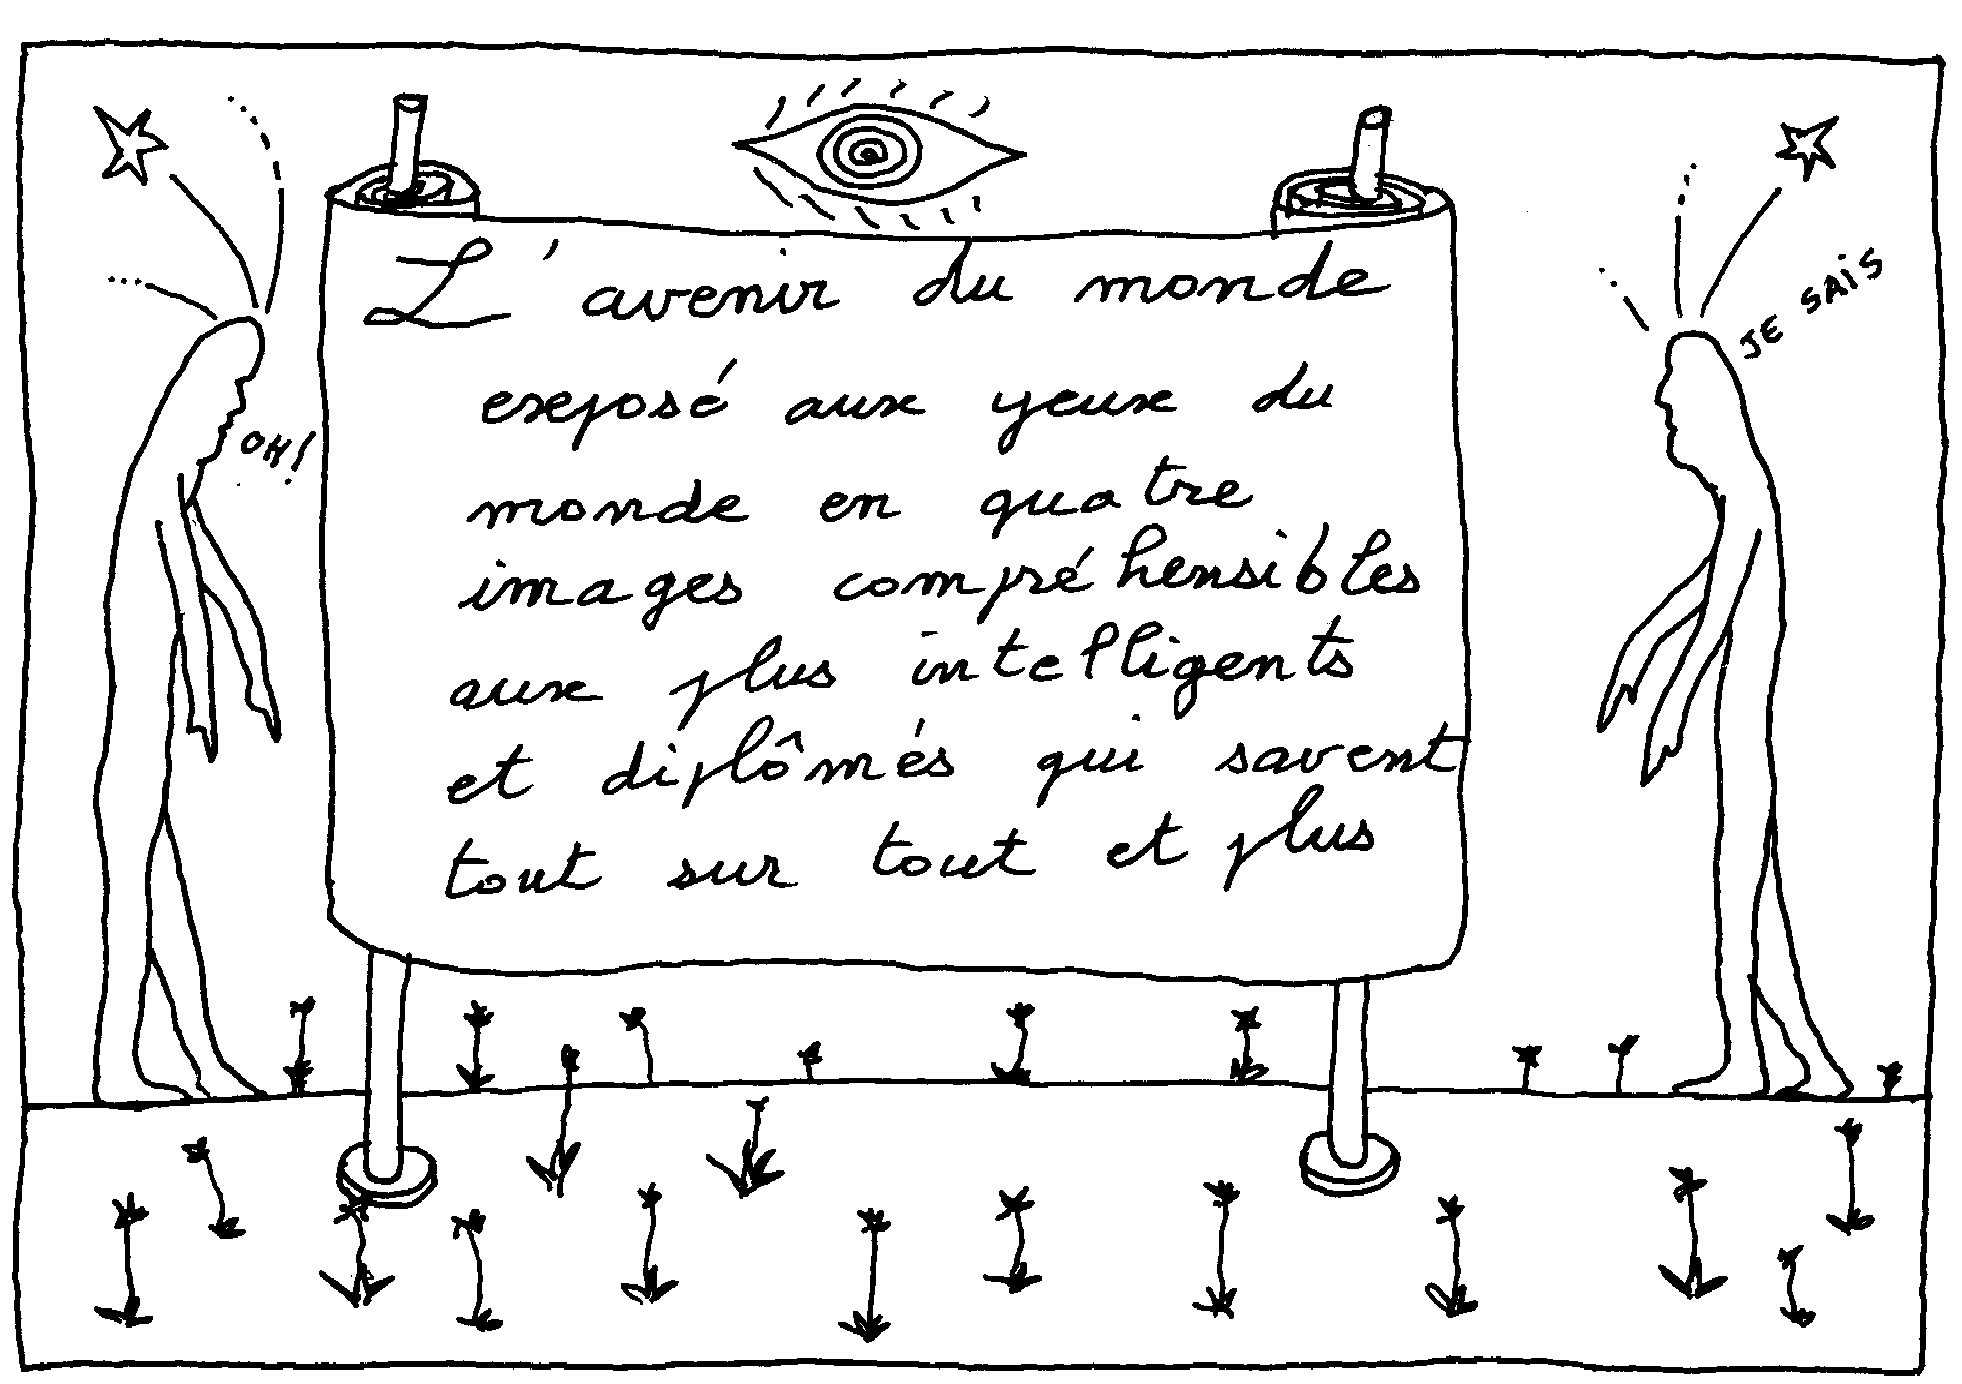 L'avenir du monde
exposé aux yeux du
monde en quatre
images compréhensibles
aux plus intelligents
et diplômés qui savent
tout sur tout et plus
OH!
JE SAIS